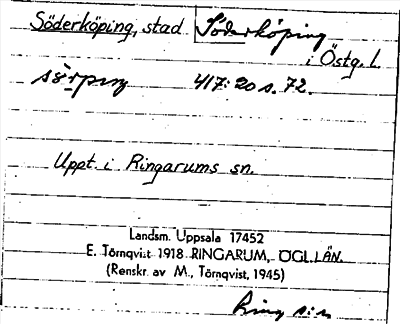 Söderköping, stad Söderköping
i Östg. L.
sö̀rpıng 417: 20 s. 72.
Uppt. i Ringarums sn.
Landsm. Uppsala 17452
E. Törnqvist 1918 RINGARUM, ÖGL. LÄN.
(Renskr. av M. Törnqvist, 1945)
Ring s:n